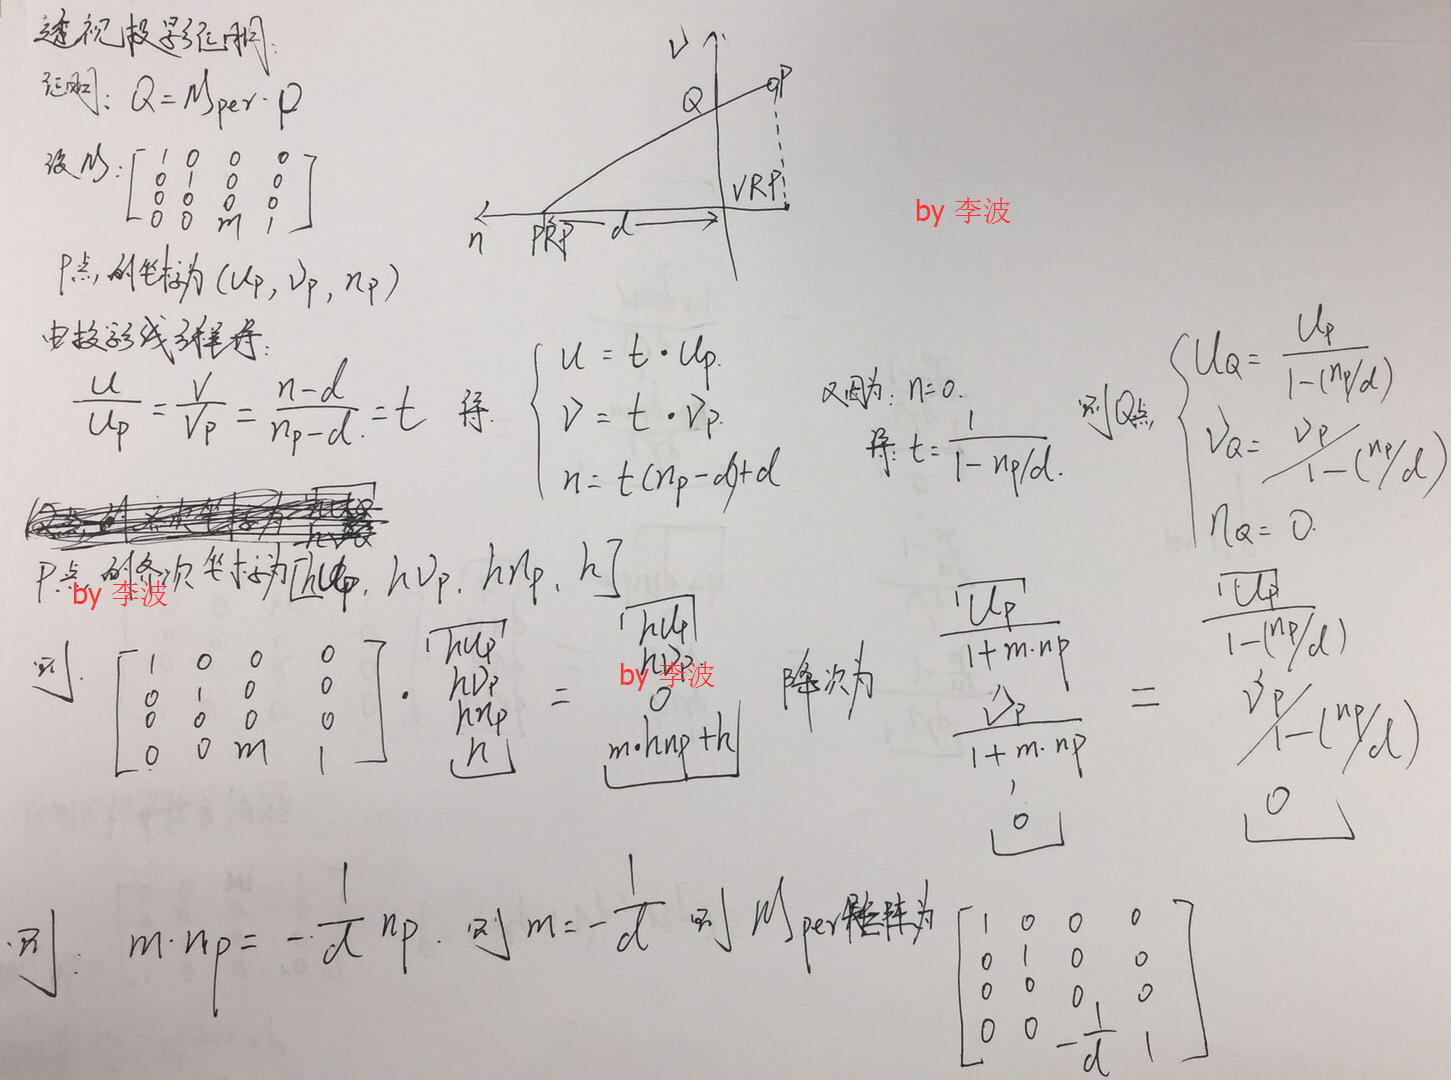 透视投影证明:
证明: Q = Mper · P
设M: [1 0 0 0
0 1 0 0
0 0 0 0
0 0 m 1]
V
Q
P
VRP
n
PRP
d
by 李波
P点的坐标为 (uP, vP, nP)
由投影线方程得:
u/uP = v/vP = (n-d)/(nP-d) = t 得
{ u = t · uP
v = t · vP
n = t(nP-d)+d
又因为: n=0.
得: t = 1/(1-nP/d).
则Q点
{ uQ = uP/(1-(nP/d))
vQ = vP/(1-(nP/d))
nQ = 0.
P点的齐次坐标为[huP, hvP, hnP, h]
by 李波
则. [1 0 0 0
0 1 0 0
0 0 0 0
0 0 m 1]
· [huP
hvP
hnP
h]
= [huP
hvP
0
m·hnP+h]
by 李波
降次为
[uP/(1+m·nP)
vP/(1+m·nP)
0]
= [uP/(1-(nP/d))
vP/(1-(nP/d))
0]
则: m·nP = -1/d nP. 则 m = -1/d 则 Mper矩阵为
[1 0 0 0
0 1 0 0
0 0 0 0
0 0 -1/d 1]